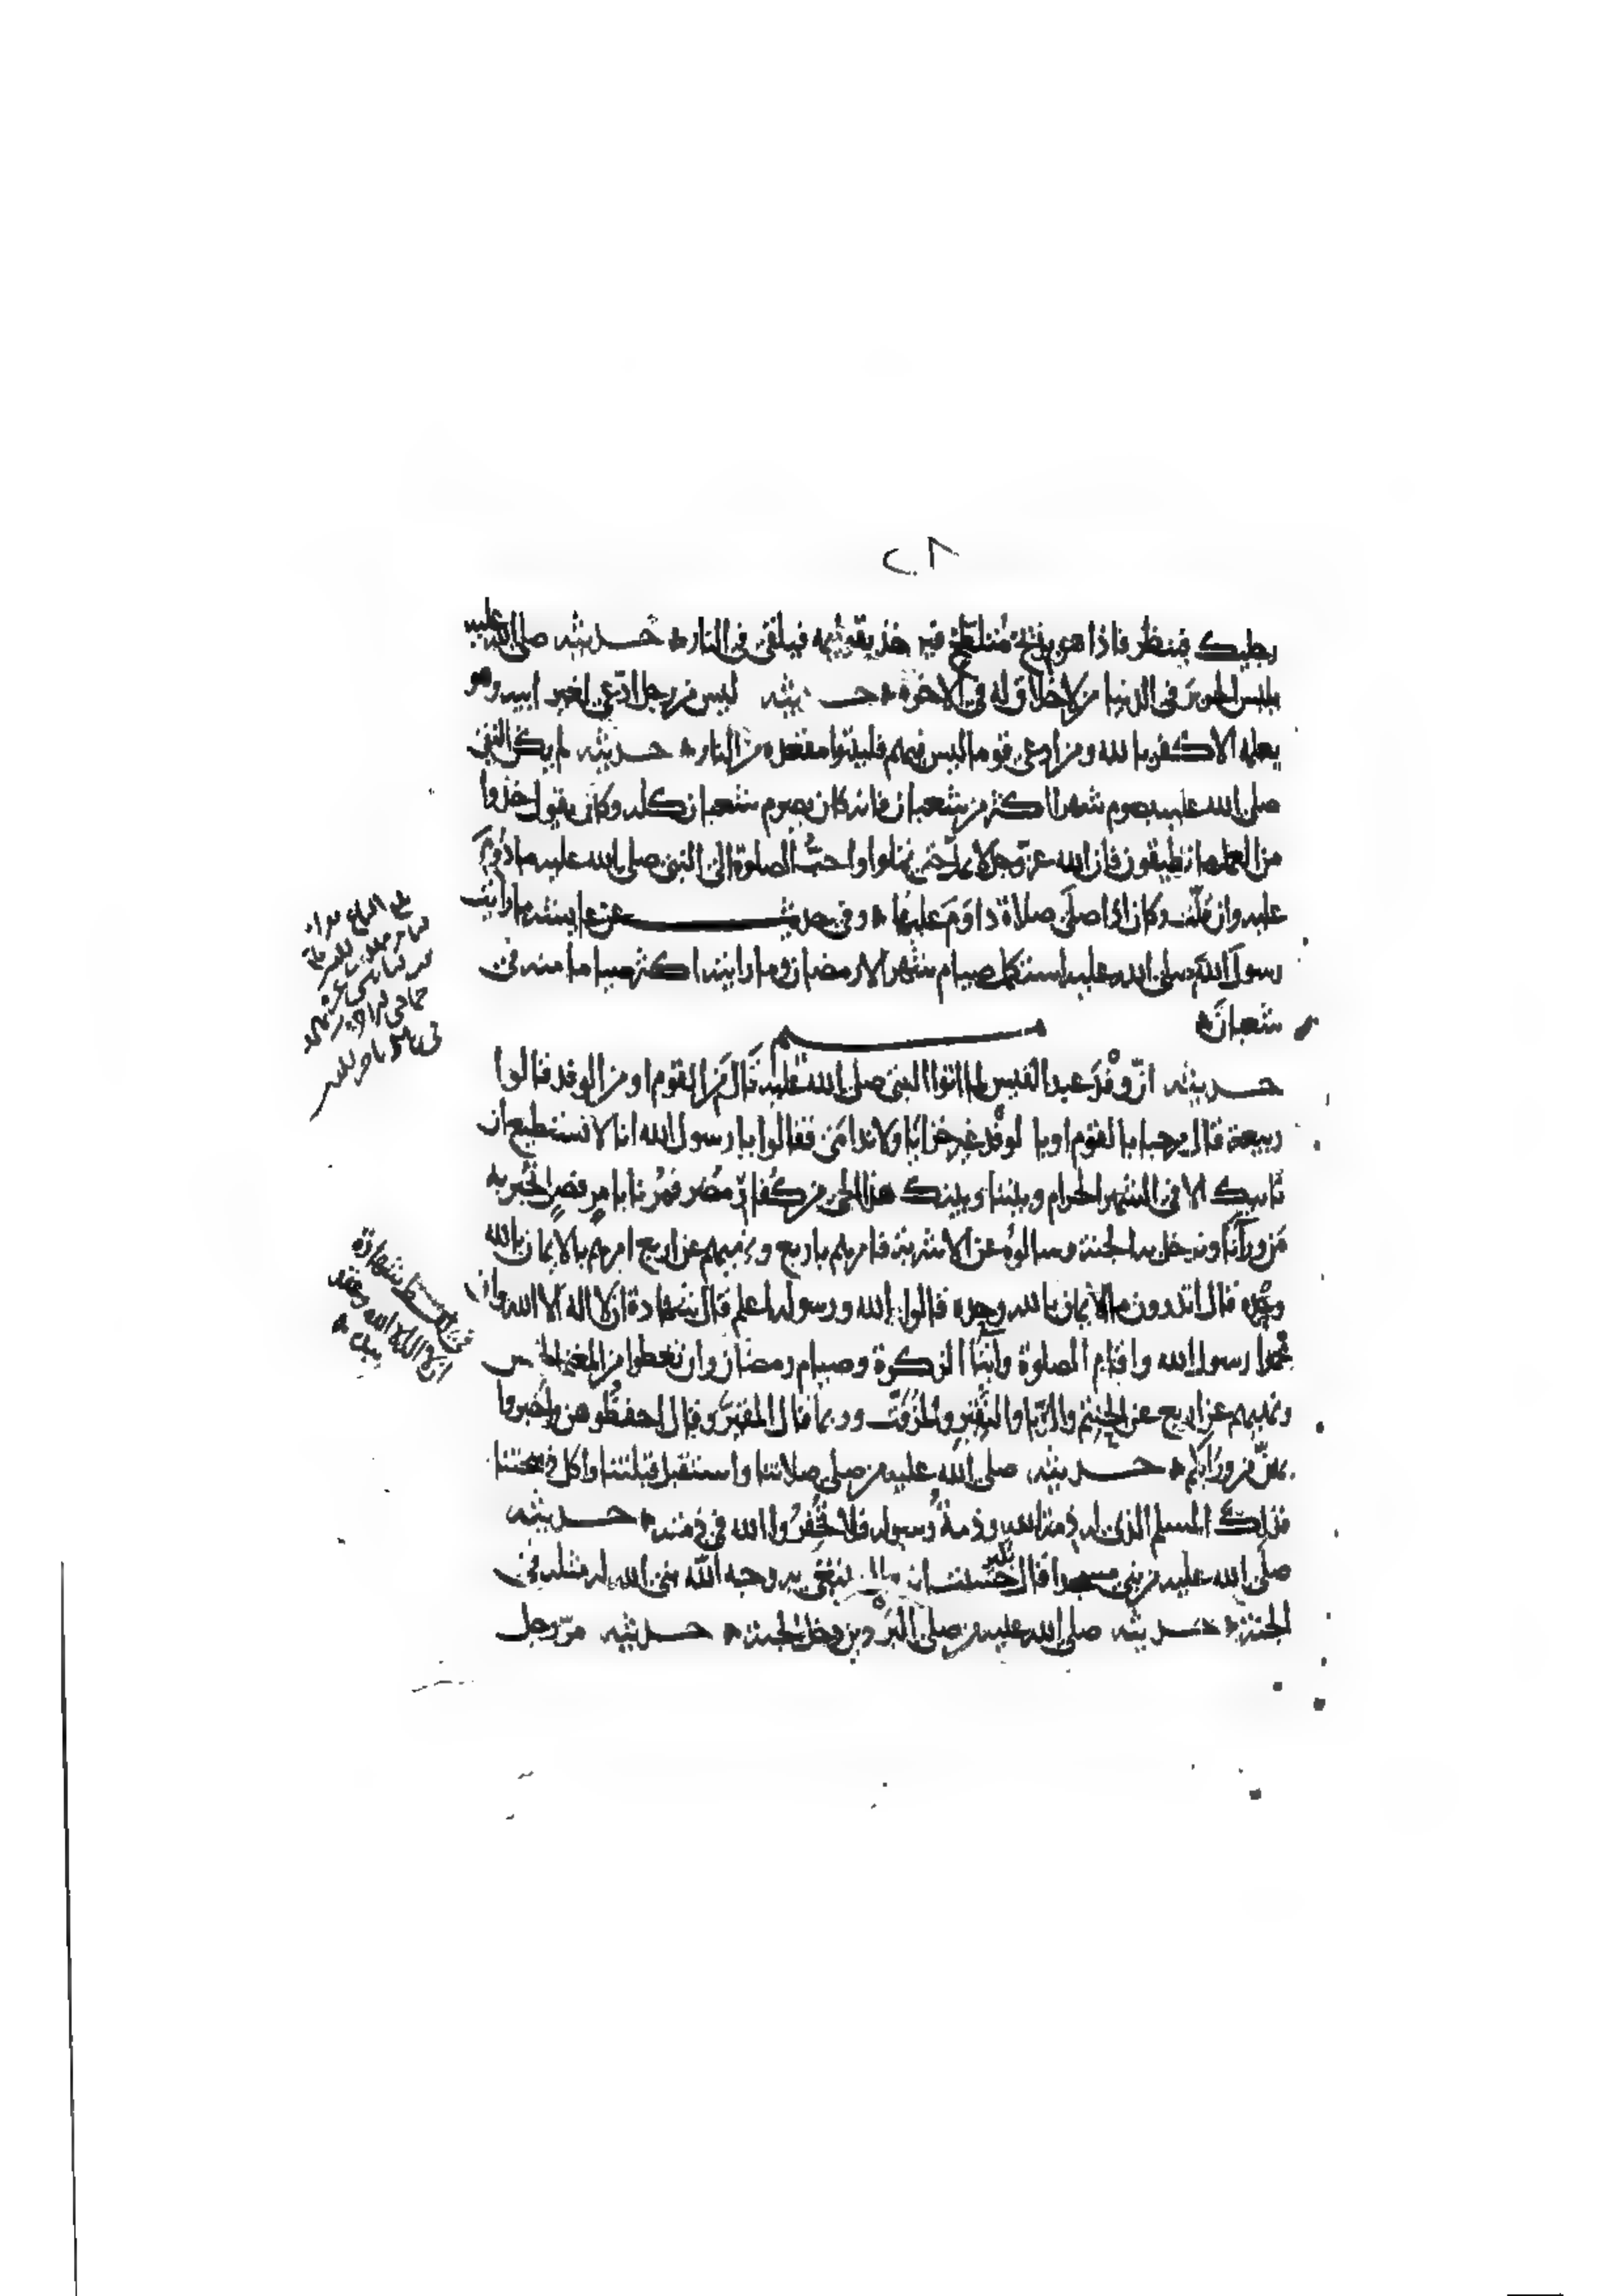 ٢٨
رجليك فينظر فاذا هو بذيخ متلطخ فيوخذ بقوائمه فيلقى في النار حديثه صلى الله عليه
يلبس الحرير في الدنيا من لا خلاق له في الاخرة حديثه ليس من رجل ادعى لغير ابيه وهو
يعلمه الا كفر بالله ومن ادعى قوما ليس فيهم فليتبوا مقعده من النار حديثه لم يكن النبي
صلى الله عليه يصوم شهرا اكثر من شعبان فانه كان يصوم شعبان كله وكان يقول خذوا
من العمل ما تطيقون فان الله عز وجل لا يمل حتى تملوا واحب الصلوة الى النبي صلى الله عليه ما دووم
عليه وان قلت وكان اذا صلى صلاة داوم عليها وفي حديث عن عايشه ما رايت
رسول الله صلى الله عليه استكمل صيام شهر الا رمضان وما رايته اكثر صياما منه في
شعبان
حديثه ان وفد عبد القيس لما اتوا النبي صلى الله عليه قال من القوم او من الوفد قالوا
ربيعة قال مرحبا بالقوم او بالوفد غير خزايا ولا ندامى فقالوا يا رسول الله انا لا نستطيع ان
ناتيك الا في الشهر الحرام وبيننا وبينك هذا الحي من كفار مضر فمرنا بامر فصل نخبر به
من ورآنا وندخل به الجنة وسالوه عن الاشربة فامرهم باربع ونهيهم عن اربع امرهم بالايمان بالله
وحده قال اتدرون ما الايمان بالله وحده قالوا الله ورسوله اعلم قال شهادة ان لا اله الا الله وان
محمدا رسول الله واقام الصلوة وايتا الزكوة وصيام رمضان وان تعطوا من المغنم الخمس
ونهيهم عن اربع عن الحنتم والدبا والنقير والمزفت وربما قال المقير وقال احفظوهن واخبروا
بهن من ورآكم حديثه صلى الله عليه من صلى صلاتنا واستقبل قبلتنا واكل ذبيحتنا
فذلك المسلم الذي له ذمة الله وذمة رسوله فلا تخفروا الله في ذمته حديثه
صلى الله عليه من بنى مسجدا قال حسبت انه قال يبتغي به وجه الله بنى الله له مثله في
الجنة حديثه صلى الله عليه من صلى البردين دخل الجنة حديثه مر رجل
شهادة
ان لا اله الا الله وعقد
بيده